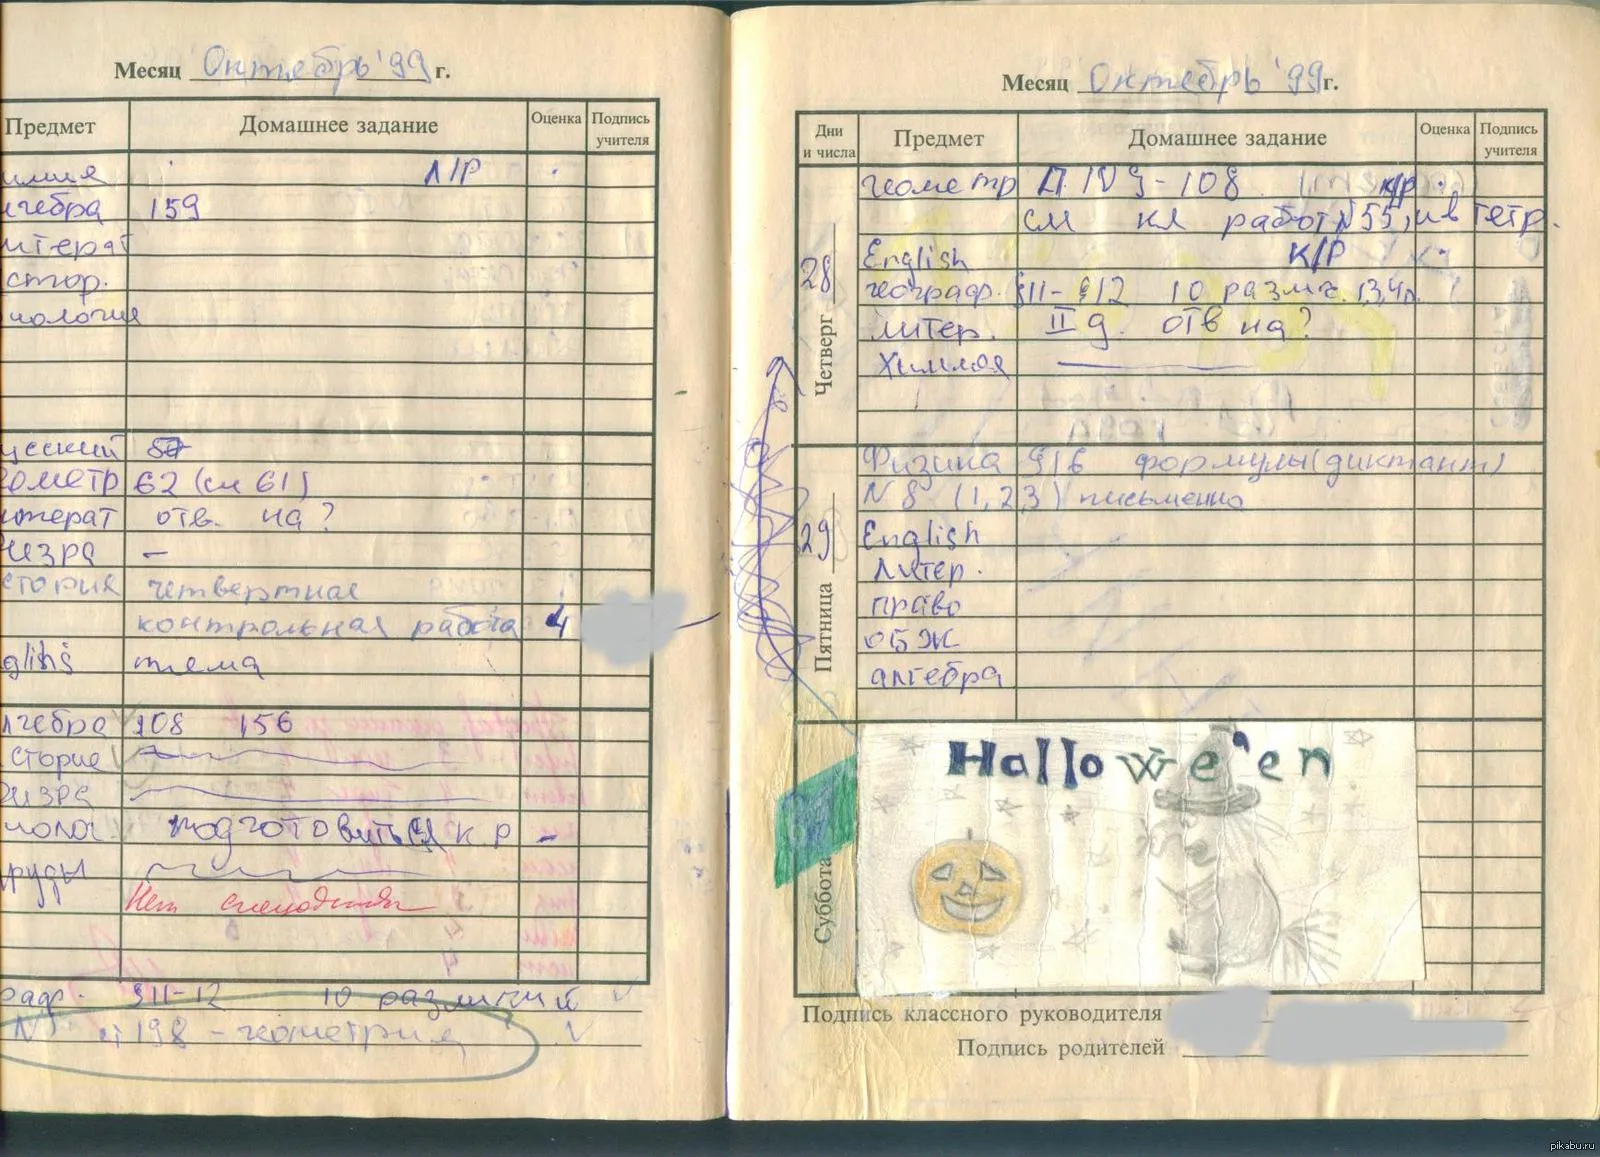 Месяц Октябрь '99 г.
Предмет Домашнее задание Оценка Подпись учителя
имия Л/Р
лгебра 159
итерат
стор.
иология
усский
еометр 62 (см 61)
итерат отв. на ?
физра —
стория четвертная
контрольная работа 4
glish тема
лгебра 108 156
стория
физра
иолог подготовиться к.р –
руды
Нет
§11-12 10 различий
N ст 198 - геометрия
Месяц Октябрь '99 г.
Дни и числа Предмет Домашнее задание Оценка Подпись учителя
Четверг 28
геометр П. 109-108 к/р
см кл работ №55, и в тетр.
English К/Р
географ. §11-§12 10 различ. 1,3,4п.
литер. II д. отв на ?
Химия
Пятница 29
Физика §16 формулы (диктант)
N 8 (1,2,3) письменно
English
литер.
право
ОБЖ
алгебра
Суббота
Hallowe'en
Подпись классного руководителя
Подпись родителей
pikabu.ru